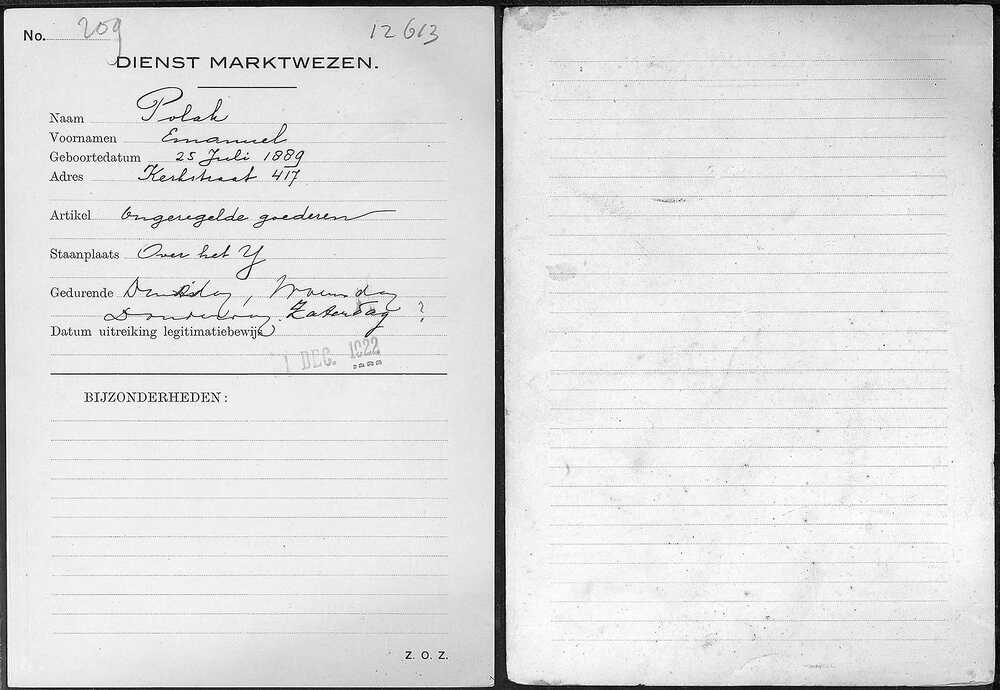 No. 209 12613
DIENST MARKTWEZEN.
Naam Polak
Voornamen Emanuel
Geboortedatum 25 Juli 1889
Adres Kerkstraat 417
Artikel Ongeregelde goederen
Staanplaats Over het Y
Gedurende Dinsdag, Woensdag
Donderdag. Zaterdag ?
Datum uitreiking legitimatiebewijs
1 DEC. 1922
BIJZONDERHEDEN:
Z. O. Z.